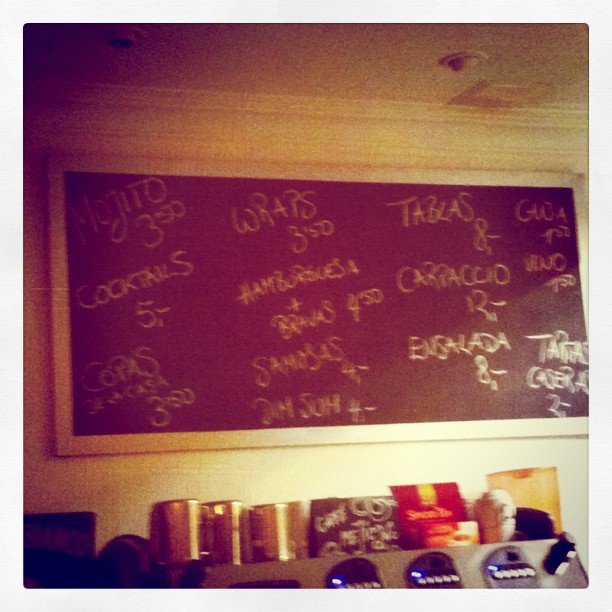 MOJITO
3'50
COCKTAILS
5,-
COPAS
DE LA CASA
3'50
WRAPS
3'50
HAMBURGUESA
+
BRAVAS 4'50
SAMOSAS
4,-
DIM SUM 4,-
TABLAS
8,-
CARPACCIO
12,-
ENSALADA
8,-
VINO
1'50
TARTAS
CASERAS
2,-
CAFÉ